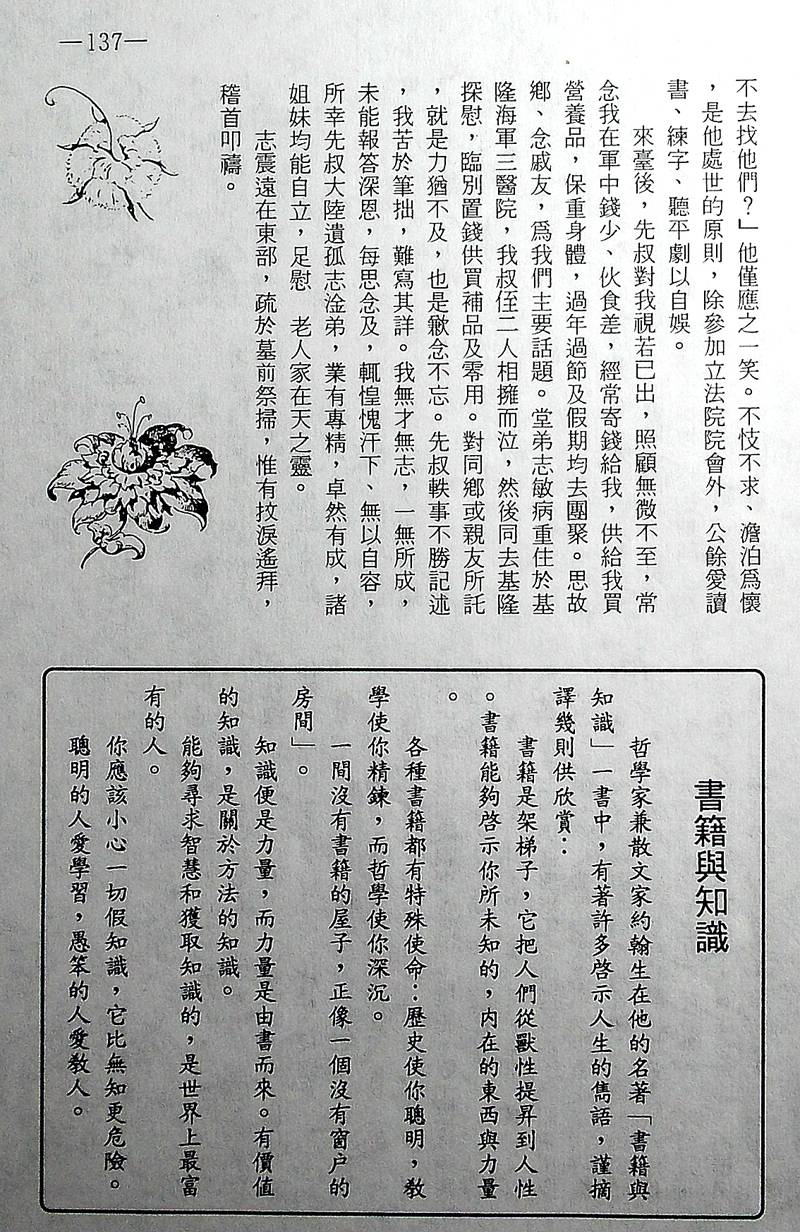 —137—
不去找他們？」他僅應之一笑。不忮不求、澹泊爲懷
，是他處世的原則，除參加立法院院會外，公餘愛讀
書、練字、聽平劇以自娛。
來臺後，先叔對我視若已出，照顧無微不至，常
念我在軍中錢少、伙食差，經常寄錢給我，供給我買
營養品，保重身體，過年過節及假期均去團聚。思故
鄉、念戚友，爲我們主要話題。堂弟志敏病重住於基
隆海軍三醫院，我叔侄二人相擁而泣，然後同去基隆
探慰，臨別置錢供買補品及零用。對同鄉或親友所託
，就是力猶不及，也是歉念不忘。先叔軼事不勝記述
，我苦於筆拙，難寫其詳。我無才無志，一無所成，
未能報答深恩，每思念及，輒惶愧汗下、無以自容，
所幸先叔大陸遺孤志淦弟，業有專精，卓然有成，諸
姐妹均能自立，足慰　老人家在天之靈。
志震遠在東部，疏於墓前祭掃，惟有抆淚遙拜，
稽首叩禱。
書籍與知識
哲學家兼散文家約翰生在他的名著「書籍與
知識」一書中，有著許多啓示人生的雋語，謹摘
譯幾則供欣賞：
書籍是架梯子，它把人們從獸性提昇到人性
。書籍能夠啓示你所未知的，內在的東西與力量
。
各種書籍都有特殊使命：歷史使你聰明，教
學使你精鍊，而哲學使你深沉。
一間沒有書籍的屋子，正像一個沒有窗户的
房間」。
知識便是力量，而力量是由書而來。有價値
的知識，是關於方法的知識。
能夠尋求智慧和獲取知識的，是世界上最富
有的人。
你應該小心一切假知識，它比無知更危險。
聰明的人愛學習，愚笨的人愛教人。